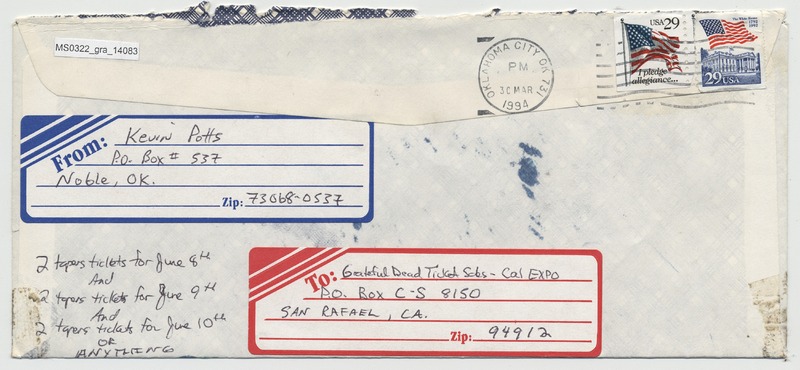 MS0322_gra_14083
OKLAHOMA CITY OK 731
PM
30 MAR
1994
USA 29
I pledge
allegiance...
The White House
1792 1992
29 USA
From: Kevin Potts
P.O. Box # 537
Noble, OK.
Zip: 73068-0537
2 tapers tickets for June 8th
And
2 tapers tickets for June 9th
And
2 tapers tickets for June 10th
OR
ANYTHING
To: Grateful Dead Ticket Sales - Cal EXPO
P.O. Box C-S 8150
SAN RAFAEL, CA.
Zip: 94912